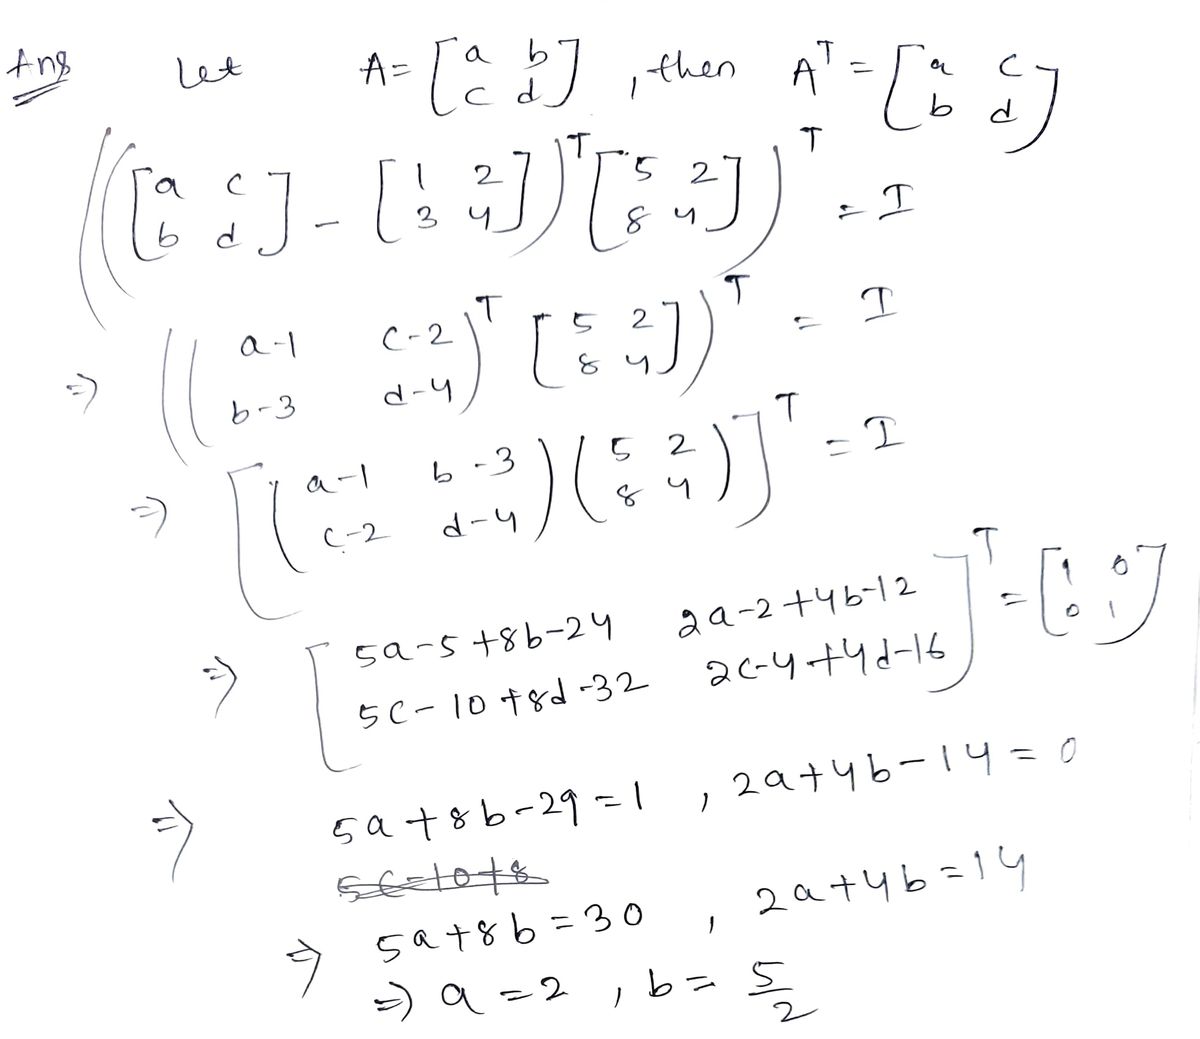 Ans Let A = [a b; c d] , then A^T = [a c; b d]
(([a c; b d] - [1 2; 3 4])^T [5 2; 8 4])^T = I
⇒ ((a-1 c-2; b-3 d-4)^T [5 2; 8 4])^T = I
⇒ [(a-1 b-3; c-2 d-4)(5 2; 8 4)]^T = I
⇒ [5a-5+8b-24 2a-2+4b-12; 5c-10+8d-32 2c-4+4d-16]^T = [1 0; 0 1]
⇒ 5a+8b-29=1 , 2a+4b-14=0
5c-10+8
⇒ 5a+8b=30 , 2a+4b=14
⇒ a=2 , b= 5/2